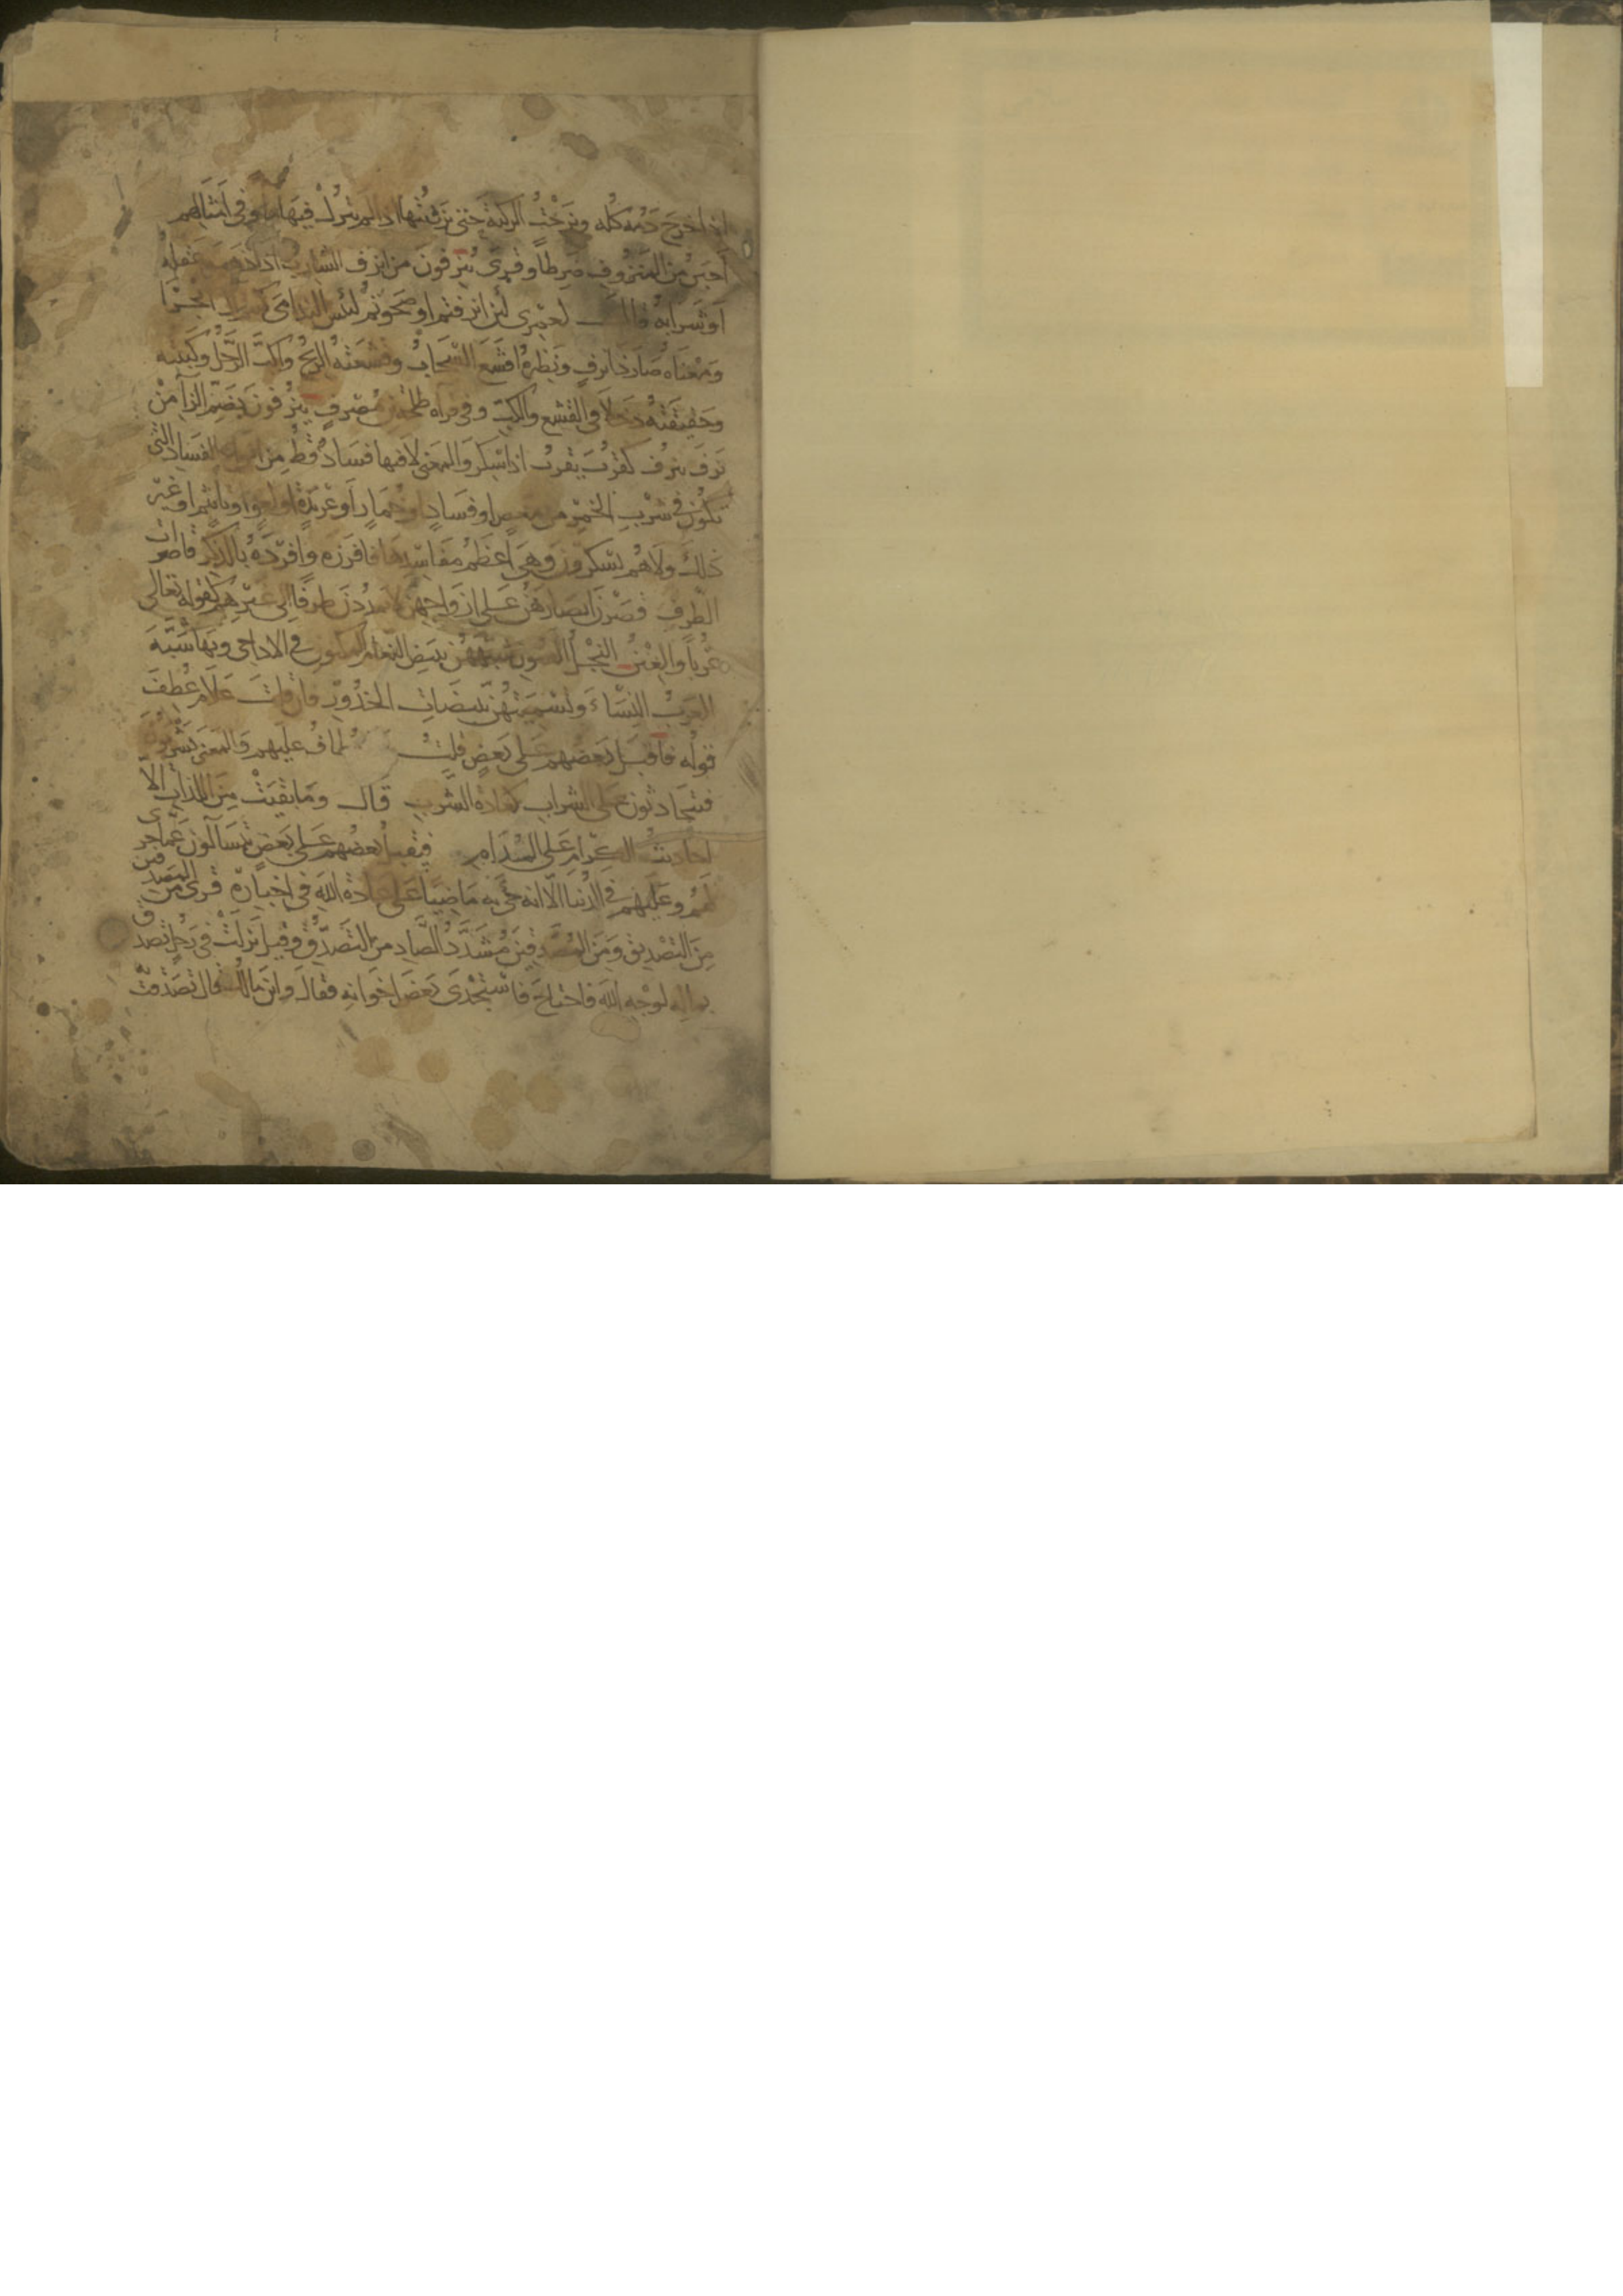 اذا خرج دمه كله ونزحت الركية حتى نزفتها اذا لم تترك فيها ماء وفي امثالهم
اجبن من المنزوف ضرطا وقرئ ينزفون من انزف الشارب اذا ذهب عقله
او شرابه قال لعمري لئن انزفتم او صحوتم لبئس الندامى كنتم ال ابجرا
ومعناه صار ذا نزف ونظيره اقشع السحاب وقشعته الريح واكب الرجل وكببته
وحقيقته دخلا في القشع والكب وفي قراءة طلحة بن مصرف ينزفون بضم الزاي من
نزف ينزف كقرب يقرب اذا سكر والمعنى لا فيها فساد قط من انواع الفساد التي
تكون في شرب الخمر من مغص او فساد او خمار او عربدة او لغو او تاثيم او غير
ذلك ولا هم يسكرون وهي اعظم مفاسدها فافرزه وافرده بالذكر قاصرات
الطرف قصرن ابصارهن على ازواجهن لا يمددن طرفا الى غيرهم كقوله تعالى
عربا والعين النجل العيون شبههن ببيض النعام المكنون في الاداحي وبها تشبه
العرب النساء وتسميتهن ببيضات الخدور فان قلت علام عطف
قوله فاقبل بعضهم على بعض قلت يطاف عليهم والمعنى يشربون
فيتحادثون على الشراب كعادة الشرب قال وما بقيت من اللذات الا
احاديث الكرام على المدام فيقبل بعضهم على بعض يتسآلون عما جرى
لهم وعليهم في الدنيا الا انه جيء به ماضيا على عادة الله في اخباره قرئ من المصدقين
من التصديق ومن المصدقين مشدد الصاد من التصدق وقيل نزلت في رجل تصدق
بماله لوجه الله فاحتاج فاستجدى بعض اخوانه فقال واين مالك قال تصدقت